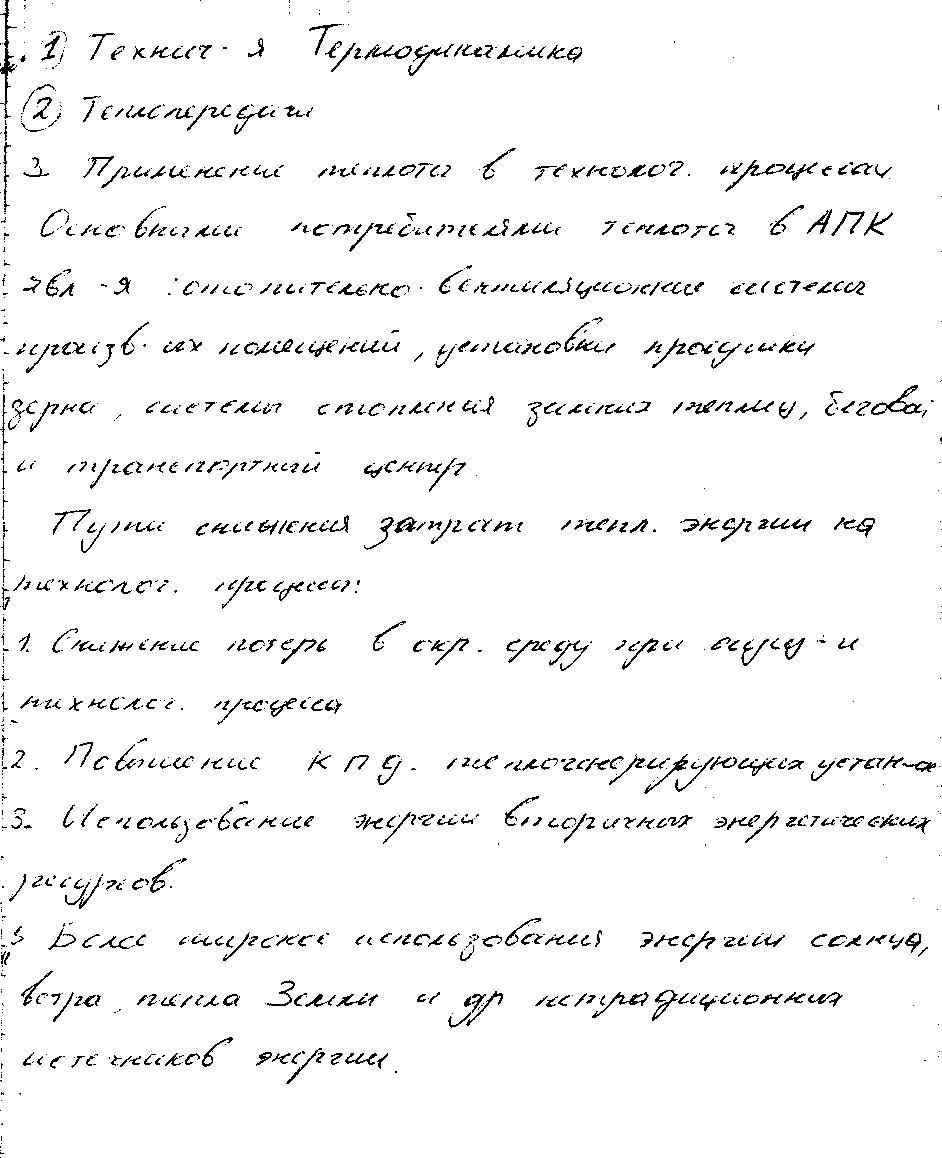 1) Технич-я Термодинамика
2) Теплопередача
3 Применение теплоты в технолог. процессах
Основными потребителями теплоты в АПК
явл-я отопительно-вентиляционные системы
произв-их помещений, установки просушки
зерна, системы отопления зимних теплиц, бытовой
и транспортный центр.
Пути снижения затрат тепл. энергии на
технолог. процессы:
1. Снижение потерь в окр. среду при
технолог. процесса
2. Повышение КПД. теплогенерирующих устан-к
3. Использование энергии вторичных энергетических
ресурсов.
Более широкое использования энергии солнца,
ветра, тепла Земли и др нетрадиционных
источников энергии.